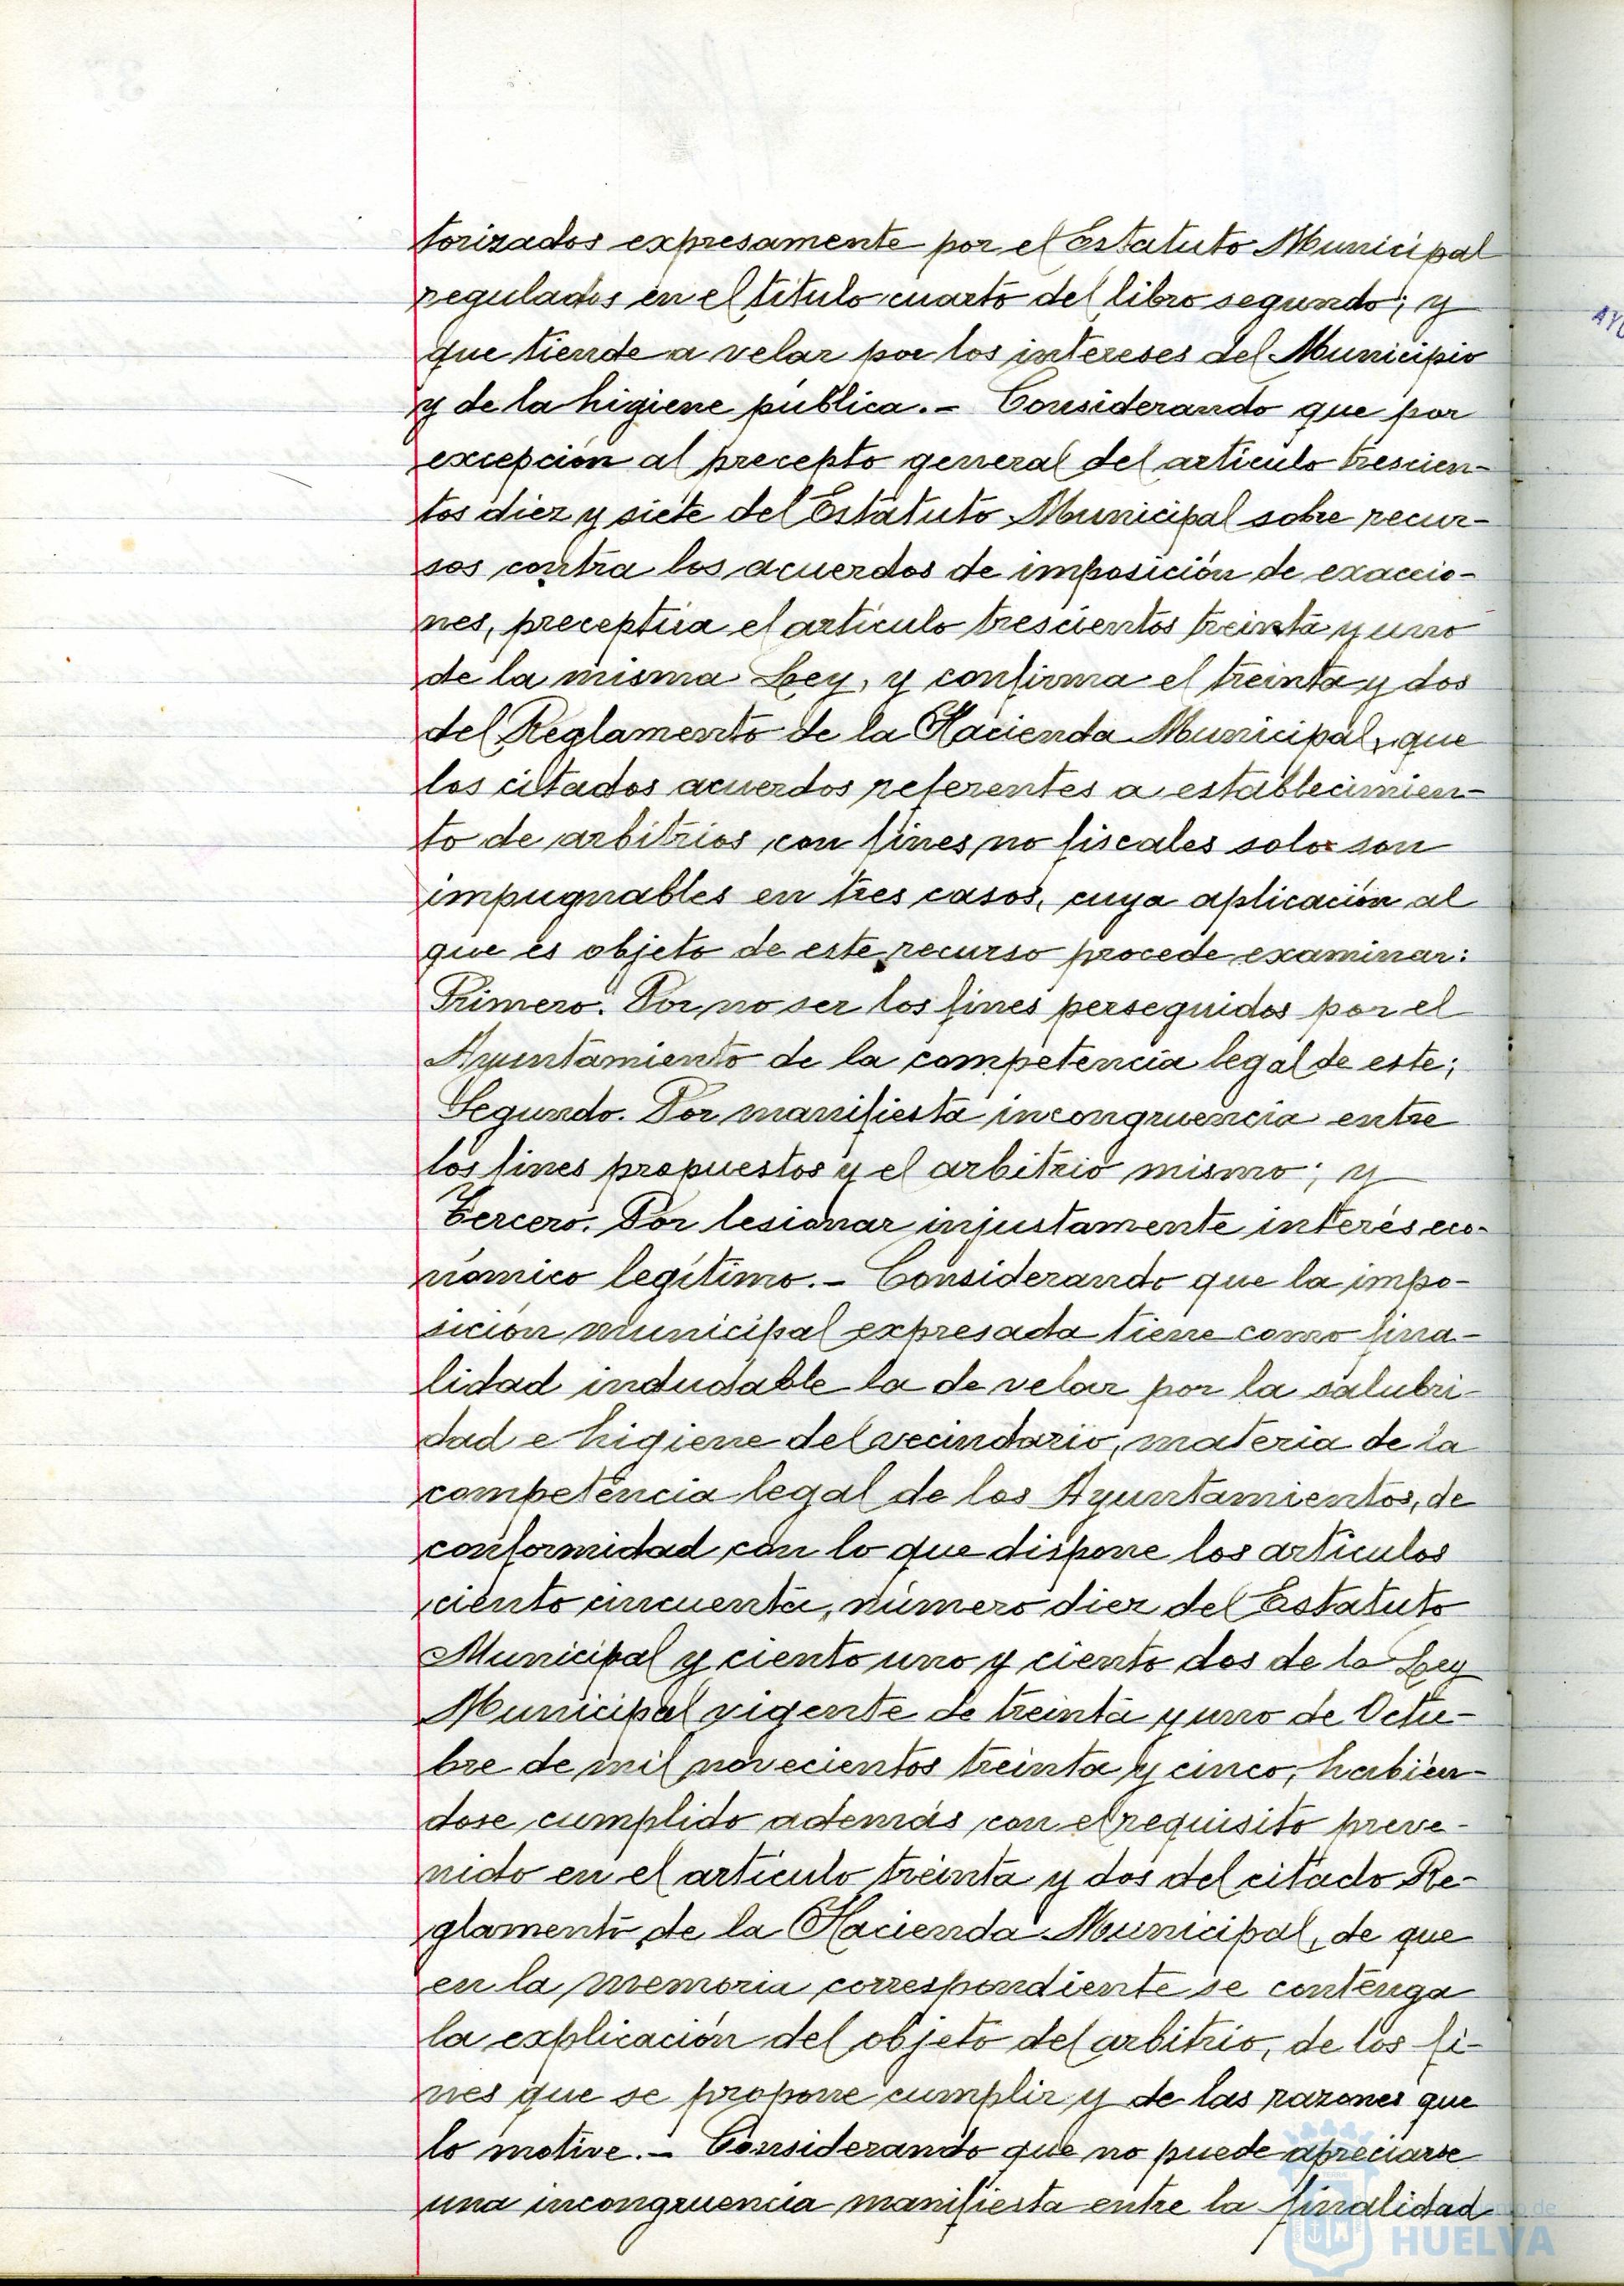 torizados expresamente por el Estatuto Municipal
regulados en el título cuarto del libro segundo; y
que tiende a velar por los intereses del Municipio
y de la higiene pública.- Considerando que por
excepción al precepto general del artículo trescien-
tos diez y siete del Estatuto Municipal sobre recur-
sos contra los acuerdos de imposición de exaccio-
nes, preceptúa el artículo trescientos treinta y uno
de la misma Ley, y confirma el treinta y dos
del Reglamento de la Hacienda Municipal, que
los citados acuerdos referentes a establecimien-
to de arbitrios con fines no fiscales solo son
impugnables en tres casos, cuya aplicación al
que es objeto de este recurso procede examinar:
Primero. Por no ser los fines perseguidos por el
Ayuntamiento de la competencia legal de este;
Segundo. Por manifiesta incongruencia entre
los fines propuestos y el arbitrio mismo; y
Tercero. Por lesionar injustamente interés eco-
nómico legítimo.- Considerando que la impo-
sición municipal expresada tiene como fina-
lidad indudable la de velar por la salubri-
dad e higiene del vecindario, materia de la
competencia legal de los Ayuntamientos, de
conformidad con lo que dispone los artículos
ciento cincuenta, número diez del Estatuto
Municipal y ciento uno y ciento dos de la Ley
Municipal vigente de treinta y uno de Octu-
bre de mil novecientos treinta y cinco, habién-
dose cumplido además con el requisito preve-
nido en el artículo treinta y dos del citado Re-
glamento de la Hacienda Municipal, de que
en la memoria correspondiente se contenga
la explicación del objeto del arbitrio, de los fi-
nes que se propone cumplir y de las razones que
lo motive.- Considerando que no puede apreciarse
una incongruencia manifiesta entre la finalidad
HUELVA